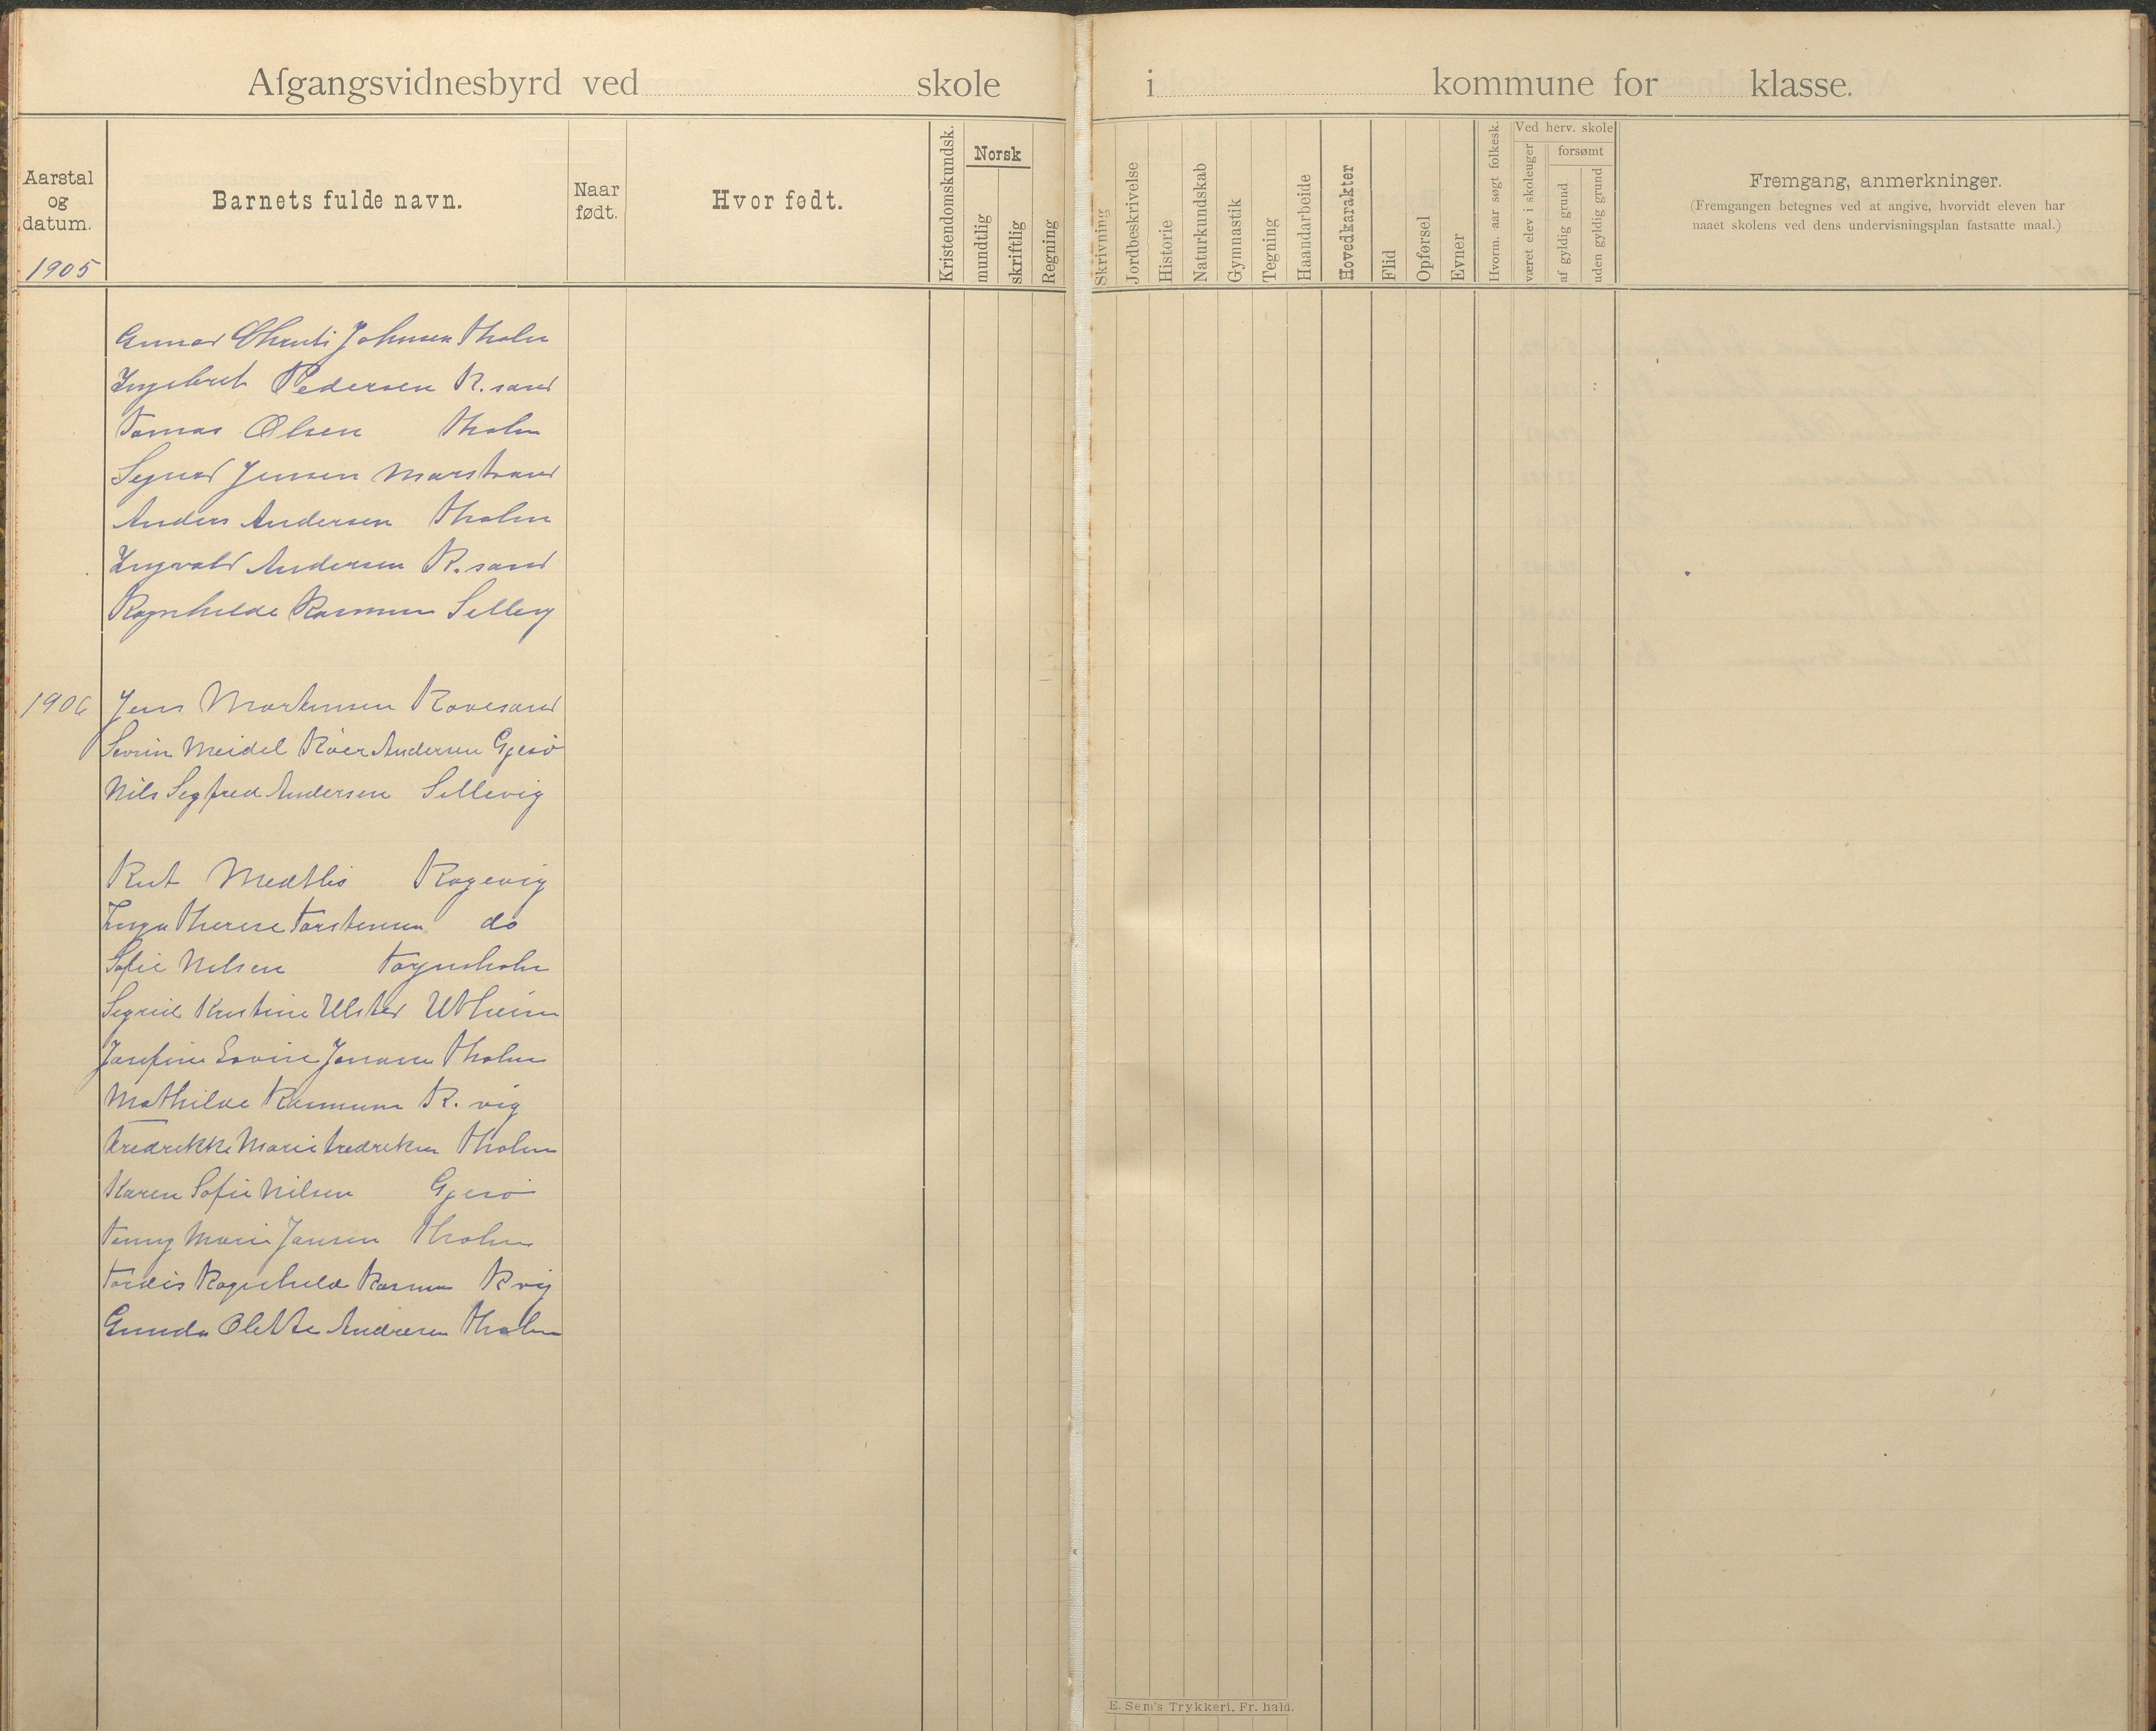 Afgangsvidnesbyrd ved skole i kommune for klasse.
Aarstal og datum.
Barnets fulde navn.
Naar født.
Hvor født.
Kristendomskundsk.
Norsk
mundtlig
skriftlig
Regning
Skrivning
Jordbeskrivelse
Historie
Naturkundskab
Gymnastik
Tegning
Haandarbeide
Hovedkarakter
Flid
Opførsel
Evner
Hvorm. aar søgt folkesk.
Ved herv. skole
været elev i skoleuger
forsømt
af gyldig grund
uden gyldig grund
Fremgang, anmerkninger.
(Fremgangen betegnes ved at angive, hvorvidt eleven har
naaet skolens ved dens undervisningsplan fastsatte maal.)
1905
Gunnar Johnsen Tholm
Ingebret Pedersen R.sand
Tomas Olsen Tholm
Jensen Marstrand
Anders Andersen Tholm
Ingvald Andersen R.sand
Ragnhilde Rasmusen
1906 Jens Mortensen Ravesand
Sevrin Meidel Róer Andersen Gjesö
Nils Segfred Andersen Sellevig
Rut Medtlis Ragevig
Inga Therese Torstensen do
Sofie Nelsen Tognsholm
Segrid Kristine Ulster Utheim
Josefine Lovise Jonassen Tholm
Mathilde Rasmussen R. vig
Fredrekke Marie Fredreksen Tholm
Karen Sofie Nilsen Gjesö
Fanny Marie Jansen Tholm
Tordis Ragnhild Rasmus R vig
Gunda Olette Andresen Tholm
E. Sem's Trykkeri, Fr. hald.